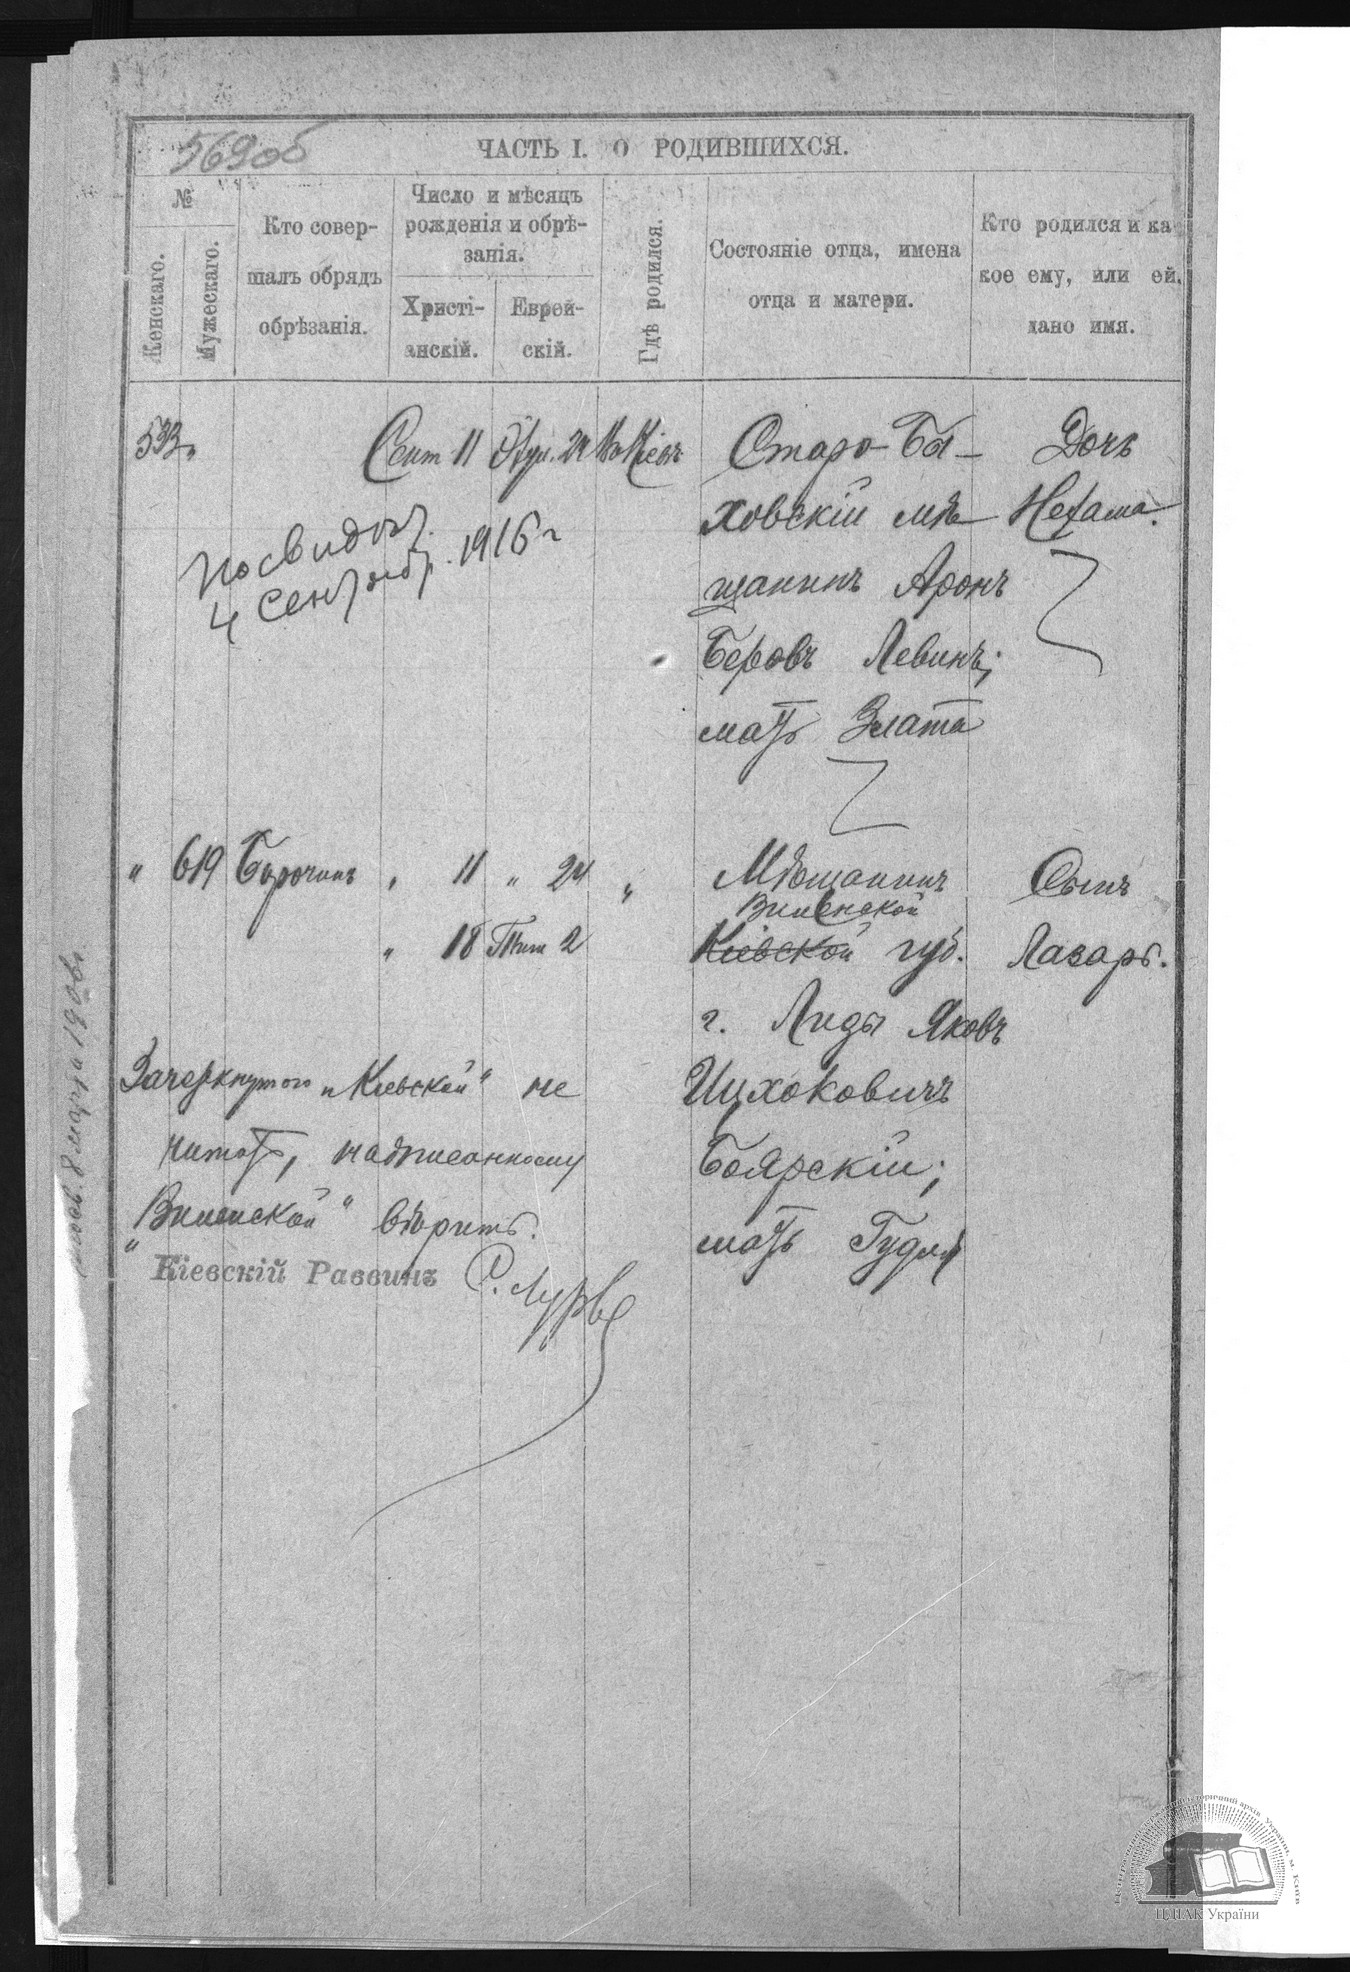 569об
ЧАСТЬ I. О РОДИВШИХСЯ.
№
Женскаго.
Мужескаго.
Кто совер-
шалъ обрядъ
обрѣзанія.
Число и мѣсяцъ
рожденія и обрѣ-
занія.
Христі-
анскій.
Еврей-
скій.
Гдѣ родился.
Состояніе отца, имена
отца и матери.
Кто родился и ка
кое ему, или ей,
дано имя.
533 „ Сент 11 24 Въ Кіевѣ Старо-Бы- Дочь
ховскій мѣ- Нехама.
щанинъ Аронъ
Беровъ Левинъ;
мать Злата
посвидѣт.
4 сентябр. 1916 г
„ 619 „ 11 „ 24 „ Мѣщанинъ Сынъ
Виленской
„ 18 Тиш 2 Кіевской губ. Лазарь.
г. Лиды Яковъ
Ицхоковичъ
Боярскій;
мать Гудля
Зачеркнутого „Кіевской“ не
читать, надписанному
„Виленской“ вѣрить.
Кіевскій Раввинъ С. Лурье
8 марта
ЦДІАК України